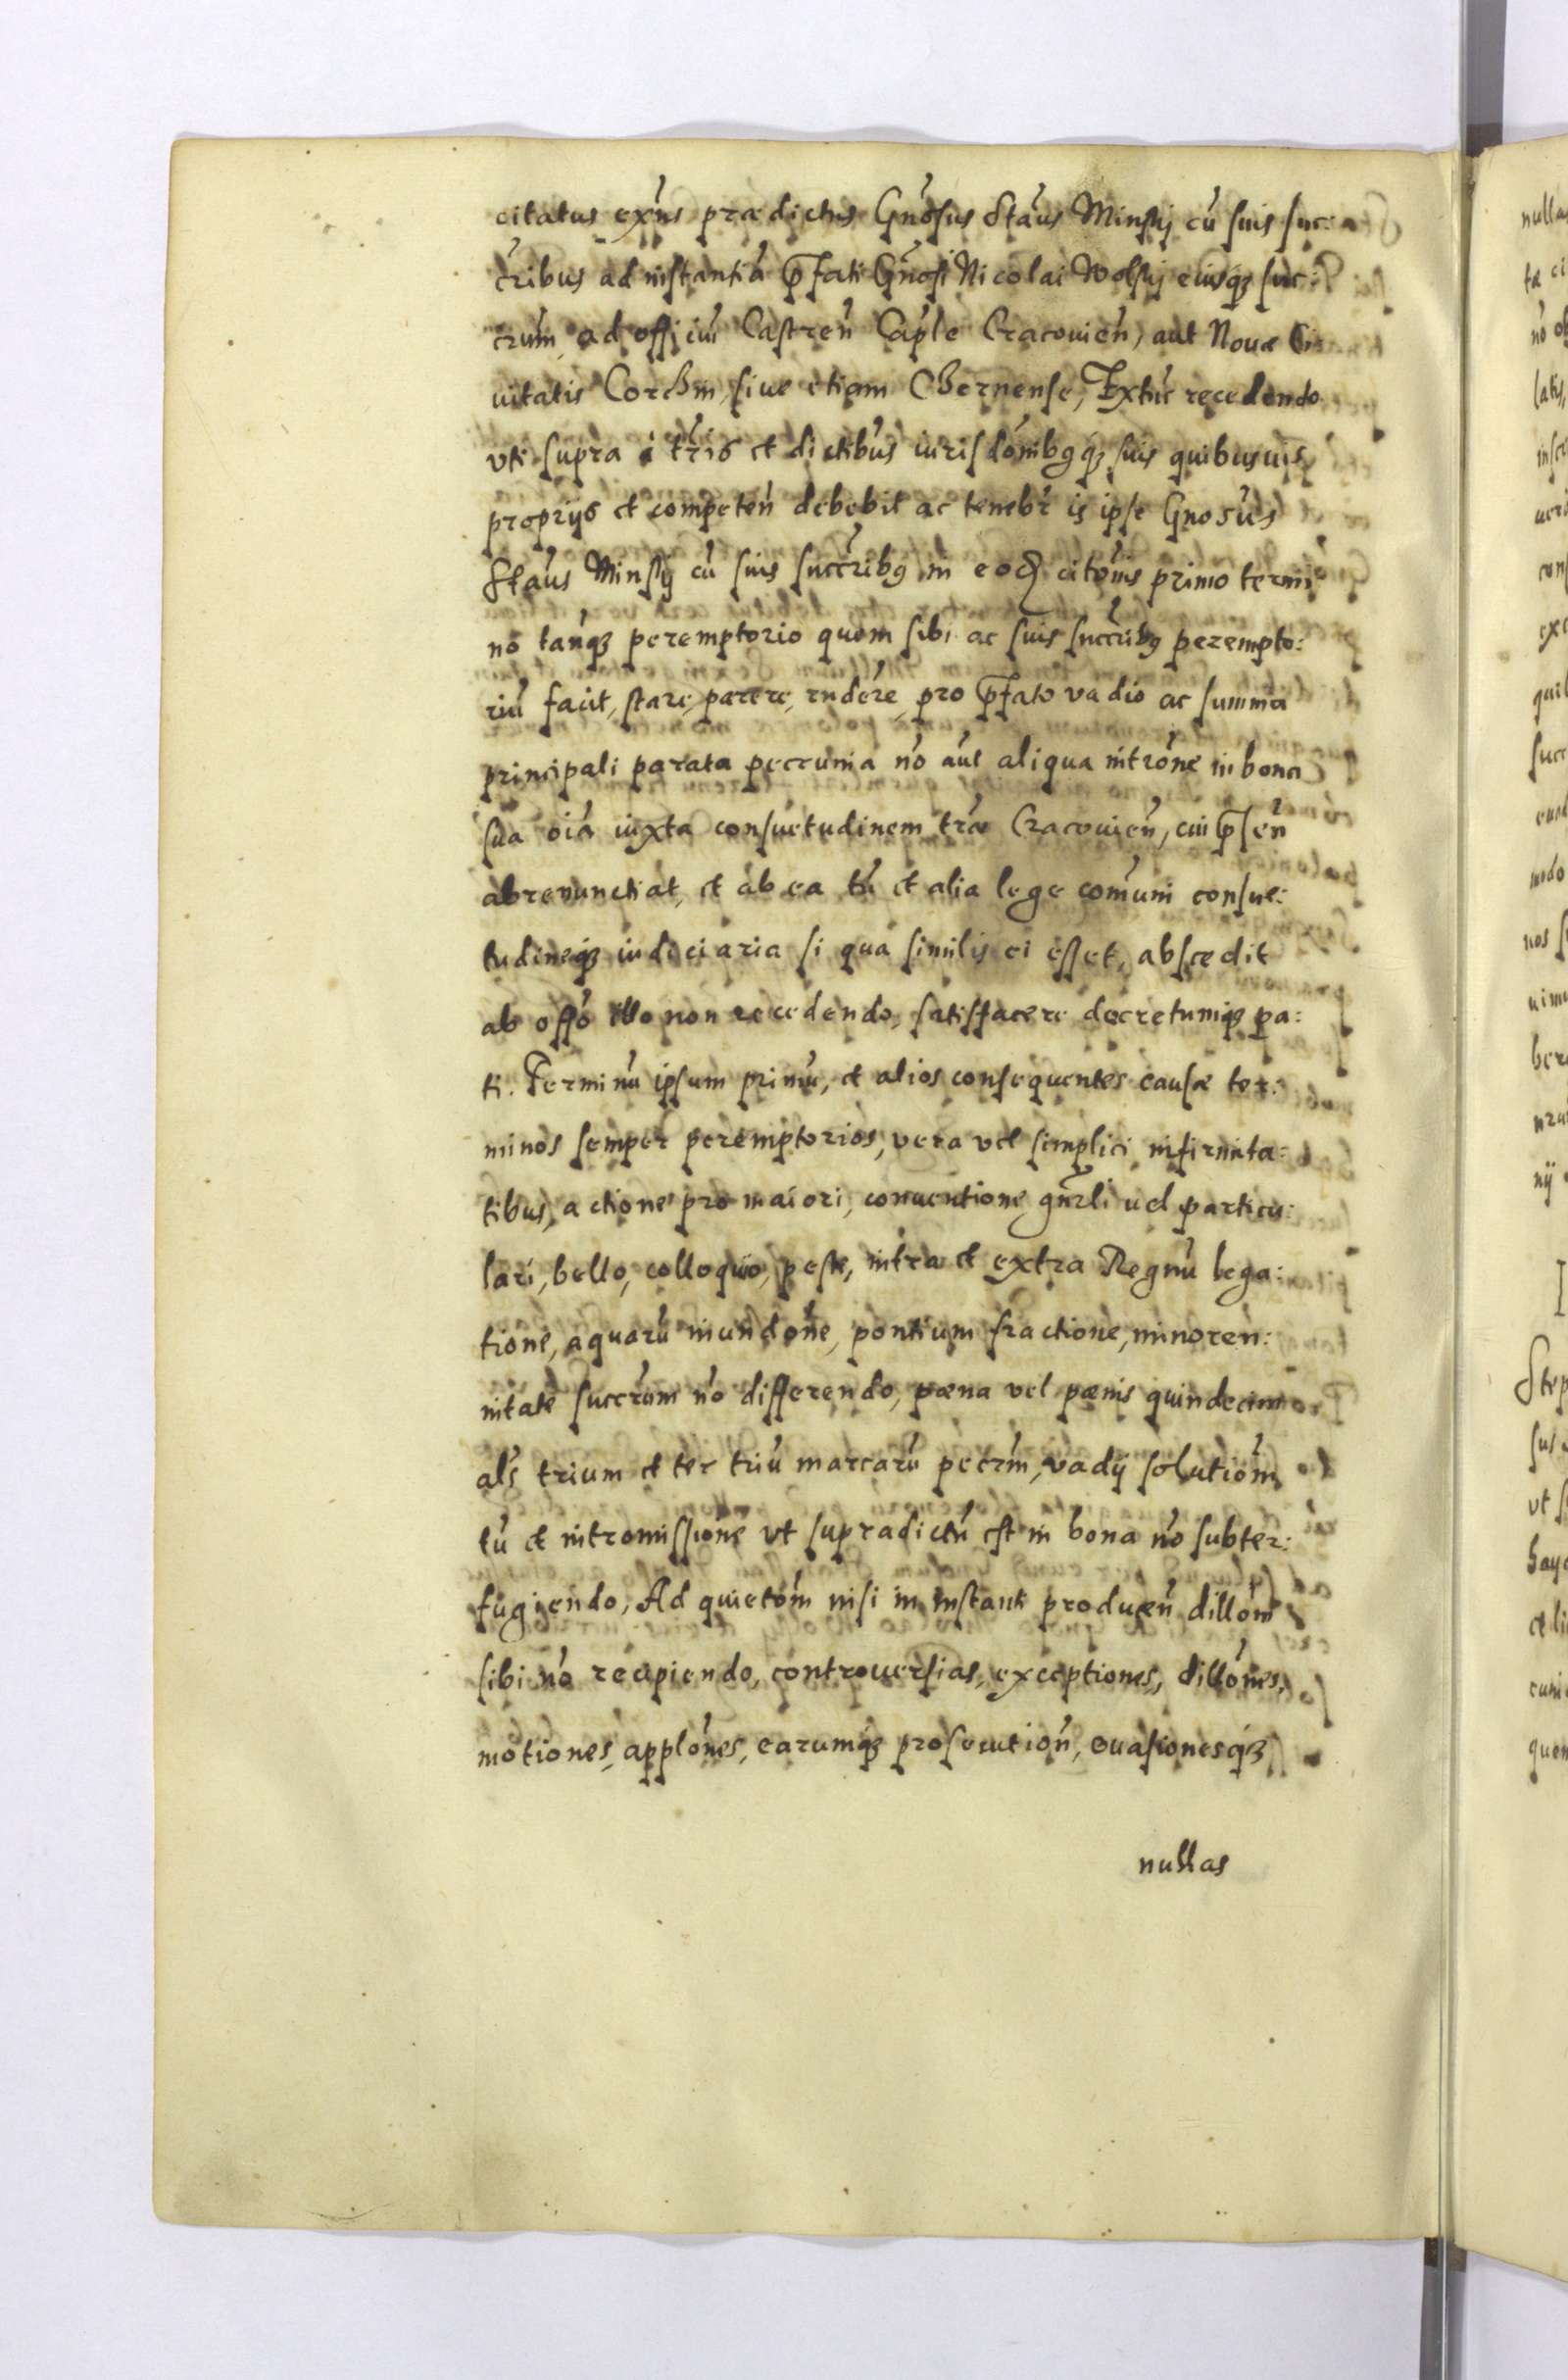 citatus exñs prædictus Gñosus Stãus Minskj cũ suis suc:
c̃ribus ad instantiã p̃fati Gñosi Nicolai Wolskj eiusq̃ suc:
c̃rum, ad officiũ Castreñ Cap̃le Cracovieñ, aut Novæ Ci:
vitatis Corchin, sive etiam Chernense, Extũc recedendo
vti supra a tr̃is et districtibus iurisdõnibusq̃ suis quibusvis
proprijs et competeñ debebit ac tenebr̃ is ipse Gnosũs
Stãus Minskj cũ suis succr̃ibus in eod̃ citõnis primo termi
no tañq̃ peremptorio quem sibi ac suis succr̃ibus perempto:
riũ facit, stare, parere, rñdere, pro p̃fato vadio ac summa
principali parata pecunia nõ aũt aliqua intrõne in bona
sua oĩa iuxta consuetudinem tr̃æ Cracovieñ, cui p̃señ
abrenunctiat, et ab ea tũ et alia lege comũni consue:
tudineq̃ iudiciaria si qua similis ei esset, abscedit
ab offõ illo non recedendo, satisfacere decretumq̃ pa:
ti. Terminũ ipsum primũ, et alios consequentes causæ ter:
minos semper peremptorios, vera vel simplici infirmita:
tibus, actione pro maiori, conventione gñrli vel particu:
lari, bello, colloquio, peste, intra et extra Regnũ lega:
tione, aquarũ inundõne, pontium fractione, minoren:
nitate succr̃um nõ differendo, pæna vel pænis quindecim
al̃s trium et ter triũ marcarũ pec̃rm, vadij solutiõm
tũ et intromissione vt supradictũ est in bona nõ subter:
fugiendo, Ad quietõm nisi in instanti produceñ dillõm
sibi nõ recipiendo, controversias, exceptiones, dillõnes,
motiones, applõnes, earumq̃ prosecutioñ, evasionesq̃
nullas